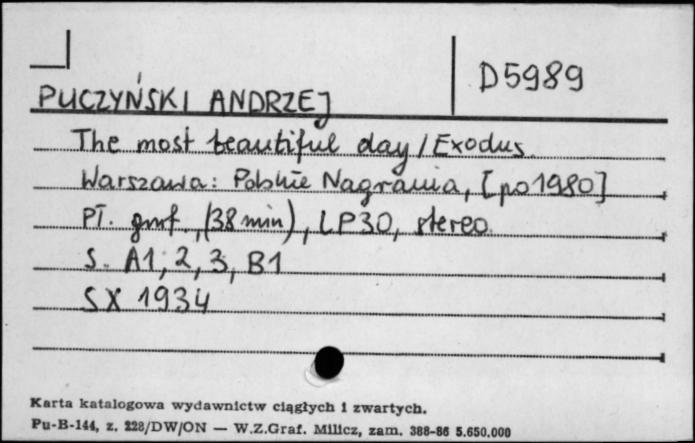 D5989
PUCZYŃSKI ANDRZEJ
The most beautiful day / Exodus
Warszawa: Polskie Nagrania, [po 1980]
Pł. gmf., (38 min), LP30, stereo
S. A1, 2, 3, B1
SX 1934
Karta katalogowa wydawnictw ciągłych i zwartych.
Pu-B-144, z. 228/DW/ON — W.Z.Graf. Milicz, zam. 388-86 5.650.000